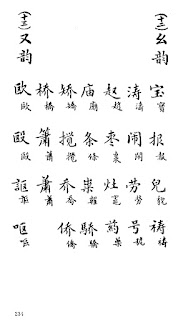 (十二)幺韵
宝寶 报報 皃貌 祷禱
涛濤 闹鬧 劳勞 号號
赵趙 枣棗 灶竈 药藥
庙廟 条條 粜糶 骄驕
矫矯 搅攪 乔喬 侨僑
桥橋 箫簫 萧蕭
(十三)又韵
欧歐 殴毆 讴謳 呕嘔